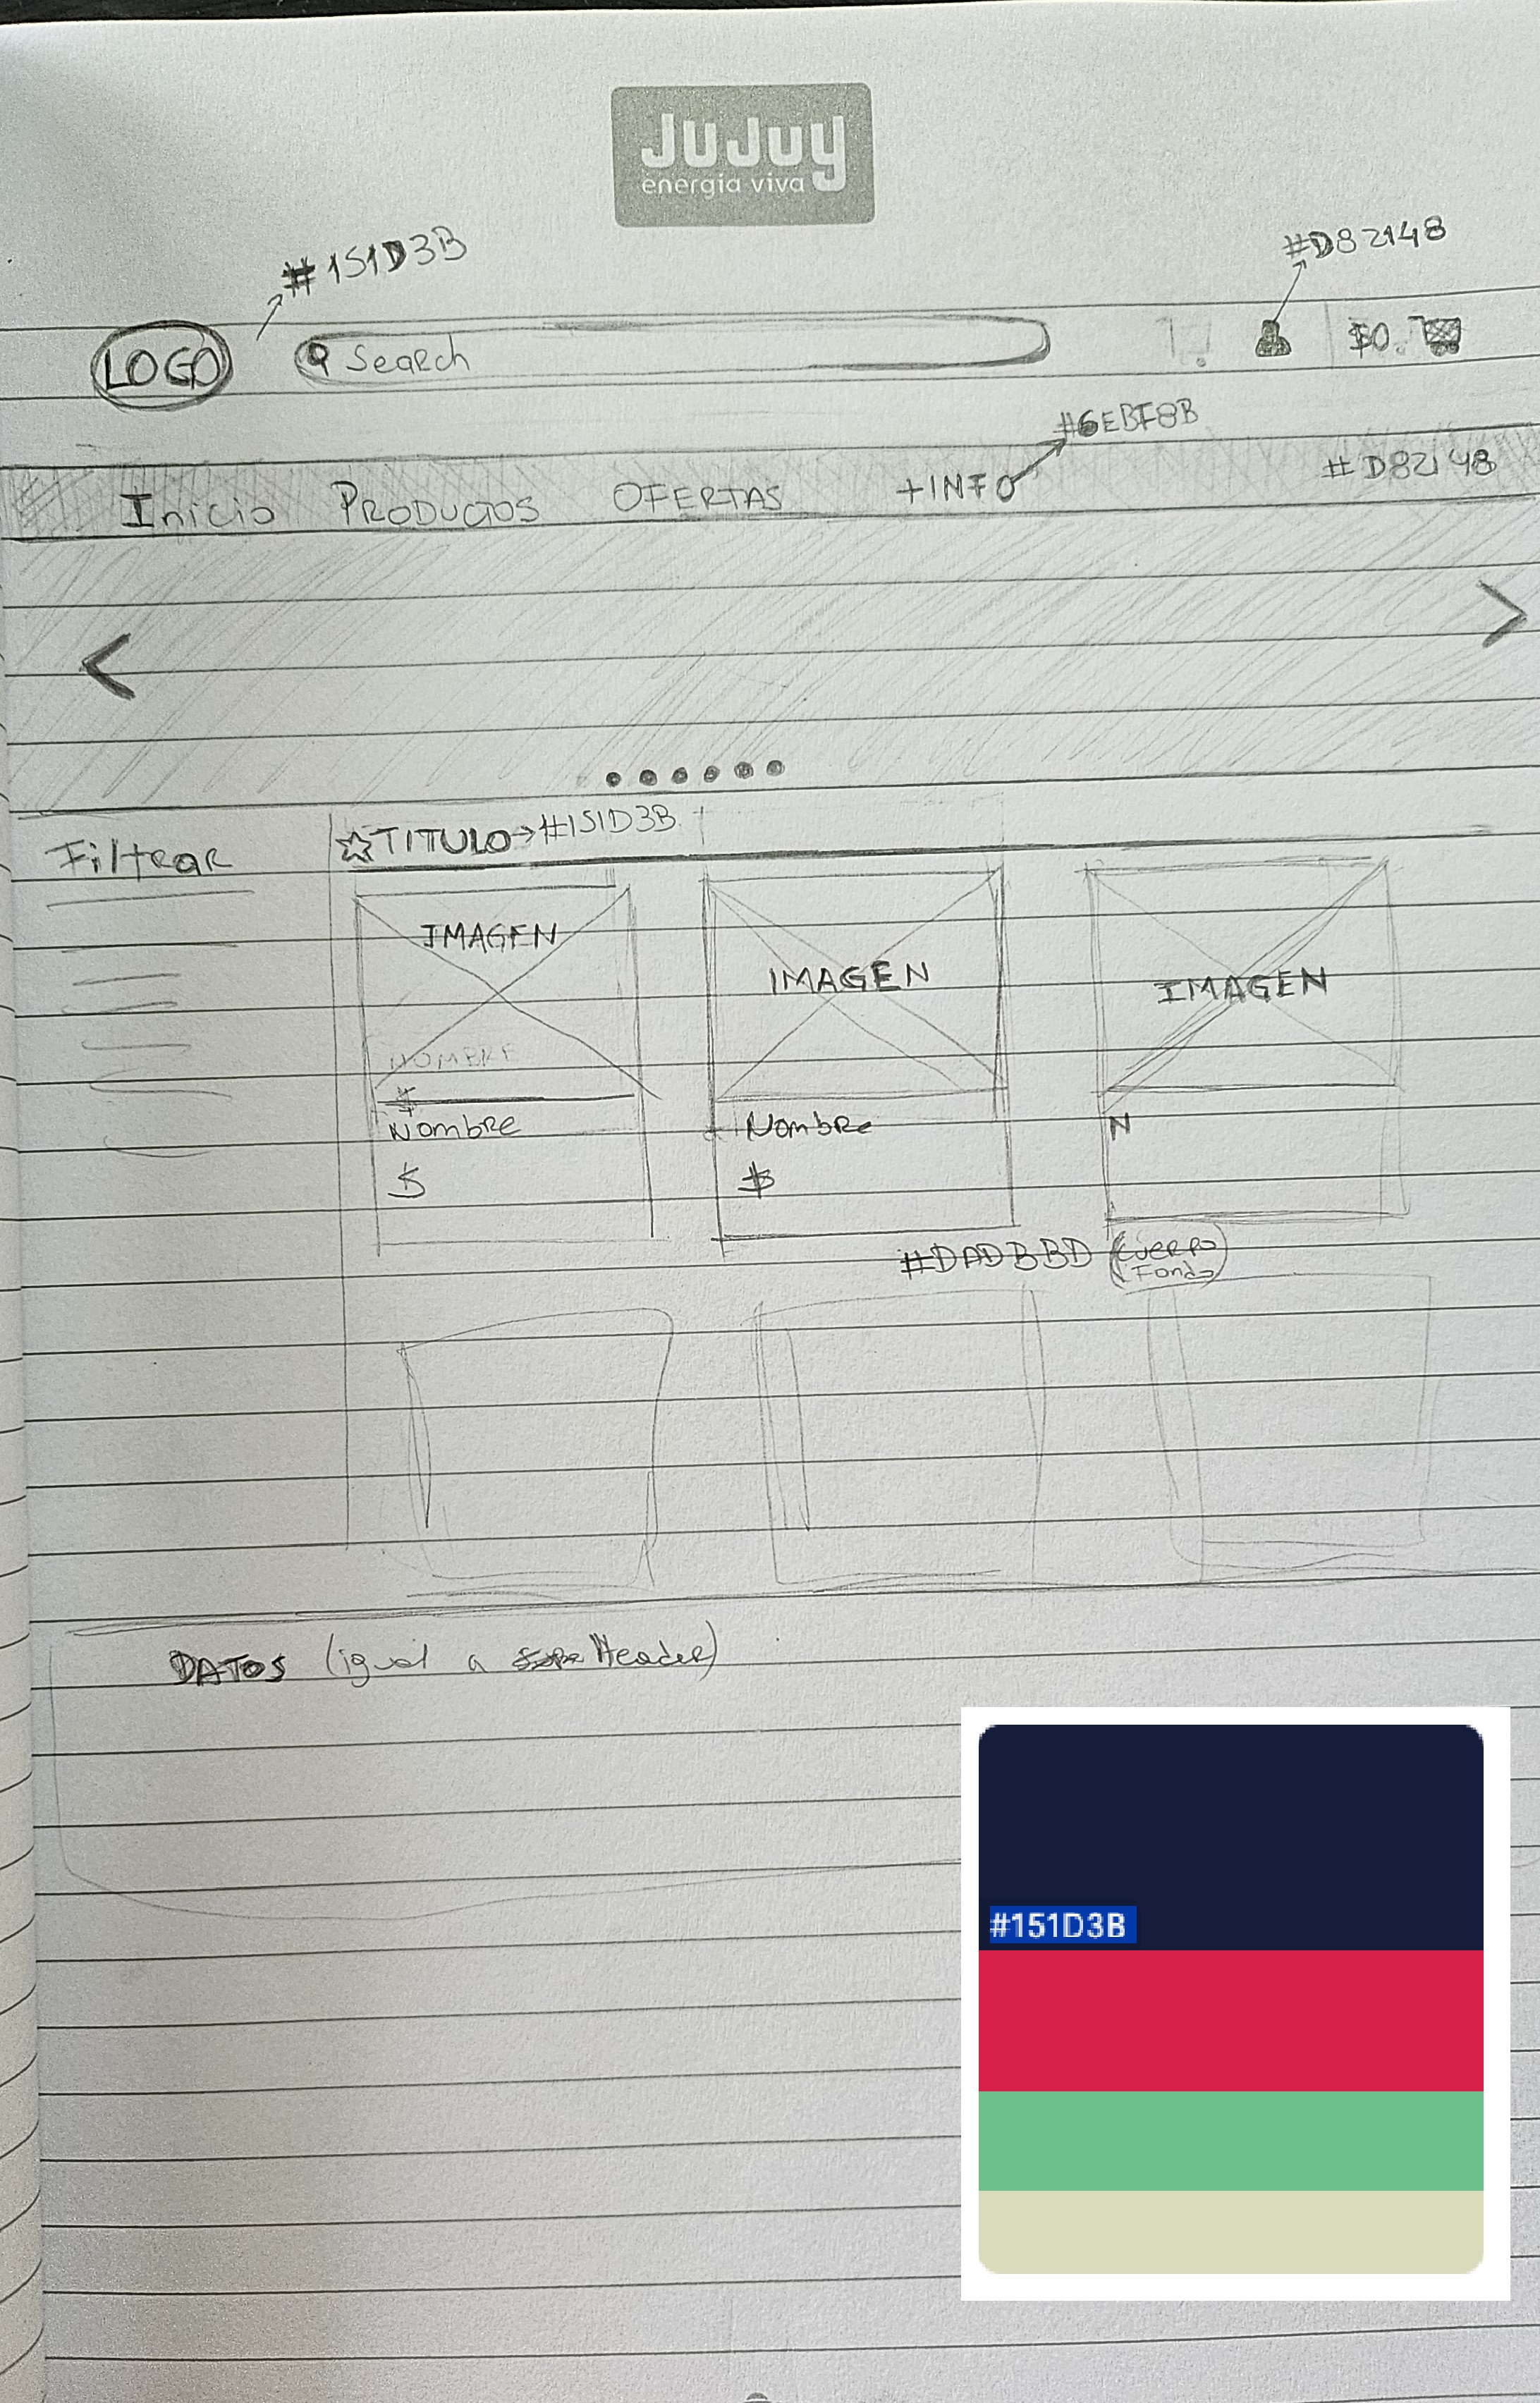 JUJUY
energía viva
#151D3B
#D82148
LOGO
Search
$0.
#6EBF8B
Inicio PRODUCTOS OFERTAS +INFO #D82148
<
>
Filtrar
TITULO→#151D3B
IMAGEN IMAGEN IMAGEN
NOMBRE
$
Nombre Nombre N
$ $
#DADBBD (cuerpo
Fondo)
DATOS (igual a Header)
#151D3B